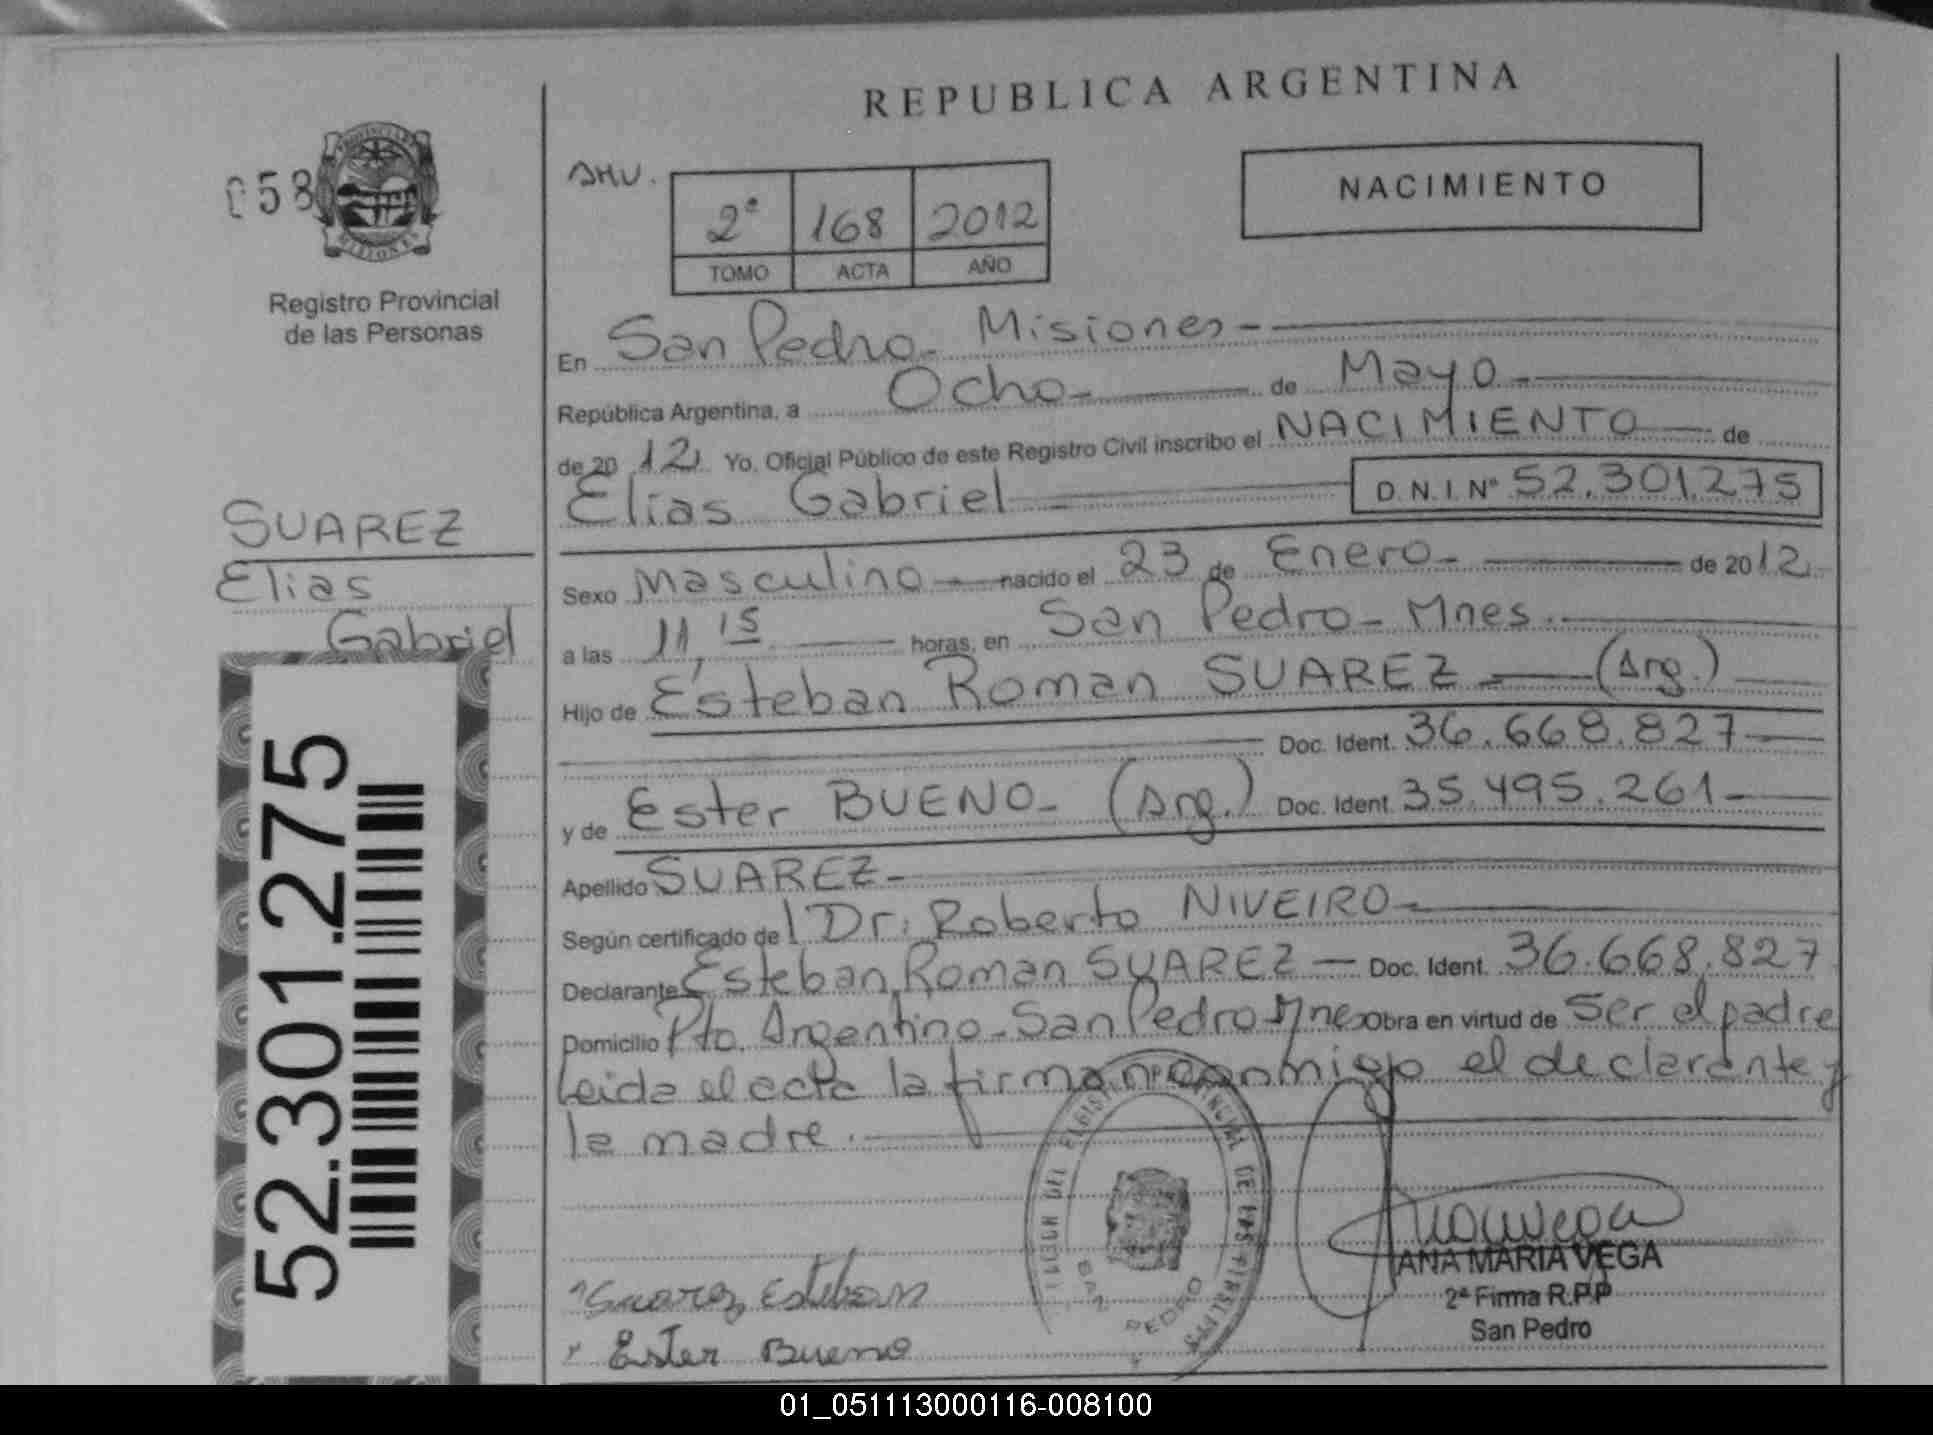 REPUBLICA ARGENTINA
058
PROVINCIA
MISIONES
Registro Provincial
de las Personas
2º 168 2012
TOMO ACTA AÑO
NACIMIENTO
En San Pedro - Misiones -
República Argentina, a Ocho - de Mayo -
de 20 12 Yo, Oficial Público de este Registro Civil inscribo el NACIMIENTO de
Elias Gabriel D.N.I. Nº 52.301.275
SUAREZ
Elias
Gabriel
52.301.275
Sexo Masculino - nacido el 23 de Enero - de 2012
a las 11,15 horas, en San Pedro - Mnes.
Hijo de Esteban Roman SUAREZ - (Arg.)
Doc. Ident. 36.668.827
y de Ester BUENO - (Arg.) Doc. Ident. 35.495.261 -
Apellido SUAREZ -
Según certificado de l Dr: Roberto NIVEIRO -
Declarante Esteban Roman SUAREZ - Doc. Ident. 36.668.827
Domicilio Pto. Argentino - San Pedro Mnes Obra en virtud de ser el padre
Leida el acta la firman conmigo el declarante y
la madre.
Suarez Esteban
Ester Bueno
PEDRO
ANA MARIA VEGA
2ª Firma R.P.P
San Pedro
01_051113000116-008100